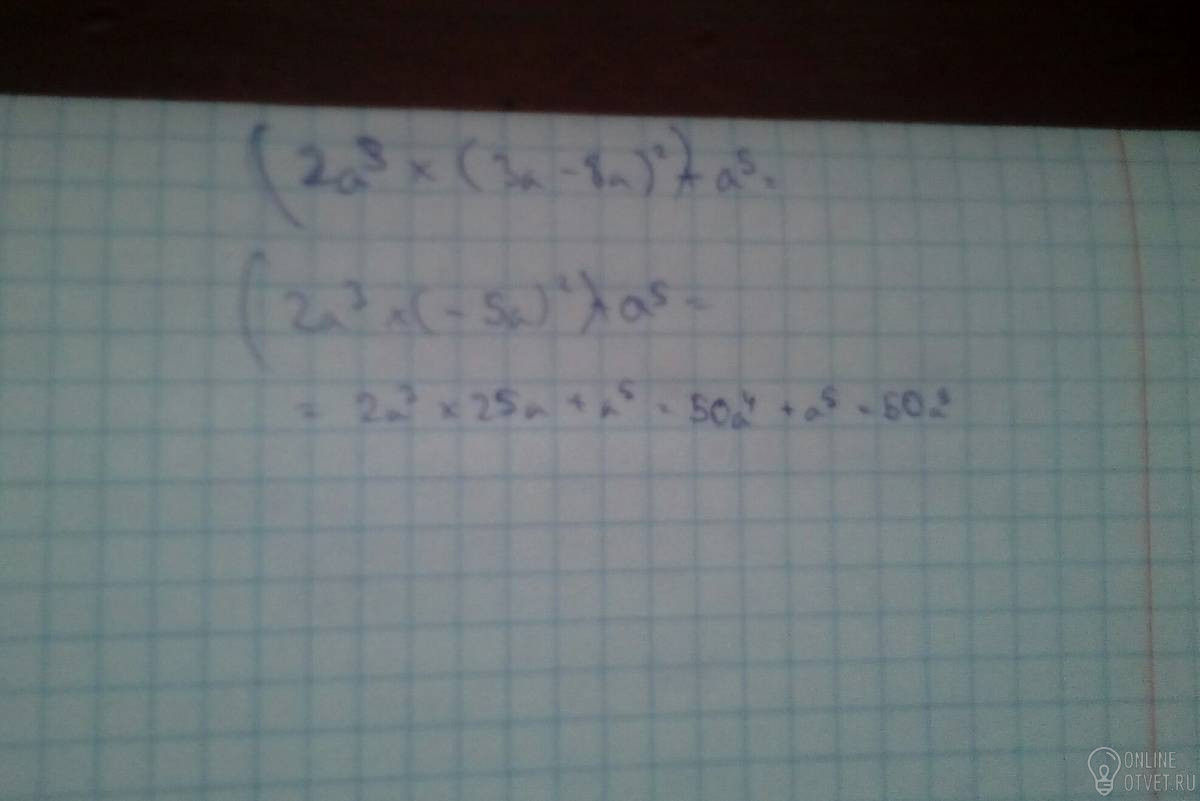 (2a³ × (3a - 8a)²) + a⁵ =
(2a³ × (- 5a)²) + a⁵ =
= 2a³ × 25a + a⁵ = 50a⁴ + a⁵ = 50a⁹
ONLINE
OTVET.RU